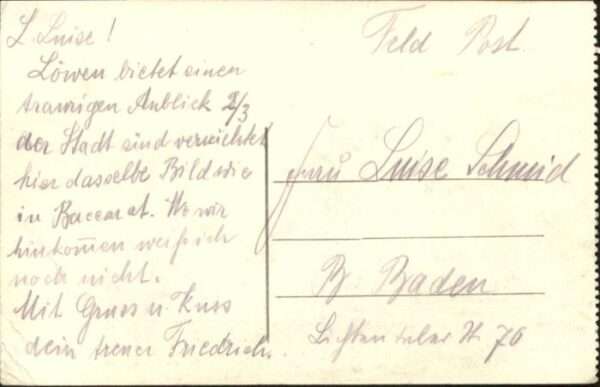 L. Luise!
Löwen bietet einen
traurigen Anblick 2/3
der Stadt sind vernichtet
hier dasselbe Bild wie
in Baccarat. Wo wir
hinkom̄en weiß ich
noch nicht.
Mit Gruss u. Kuss
dein treuer Friedrich.
Feld Post.
Frau Luise Schmid
B. Baden
Lichtentaler 70